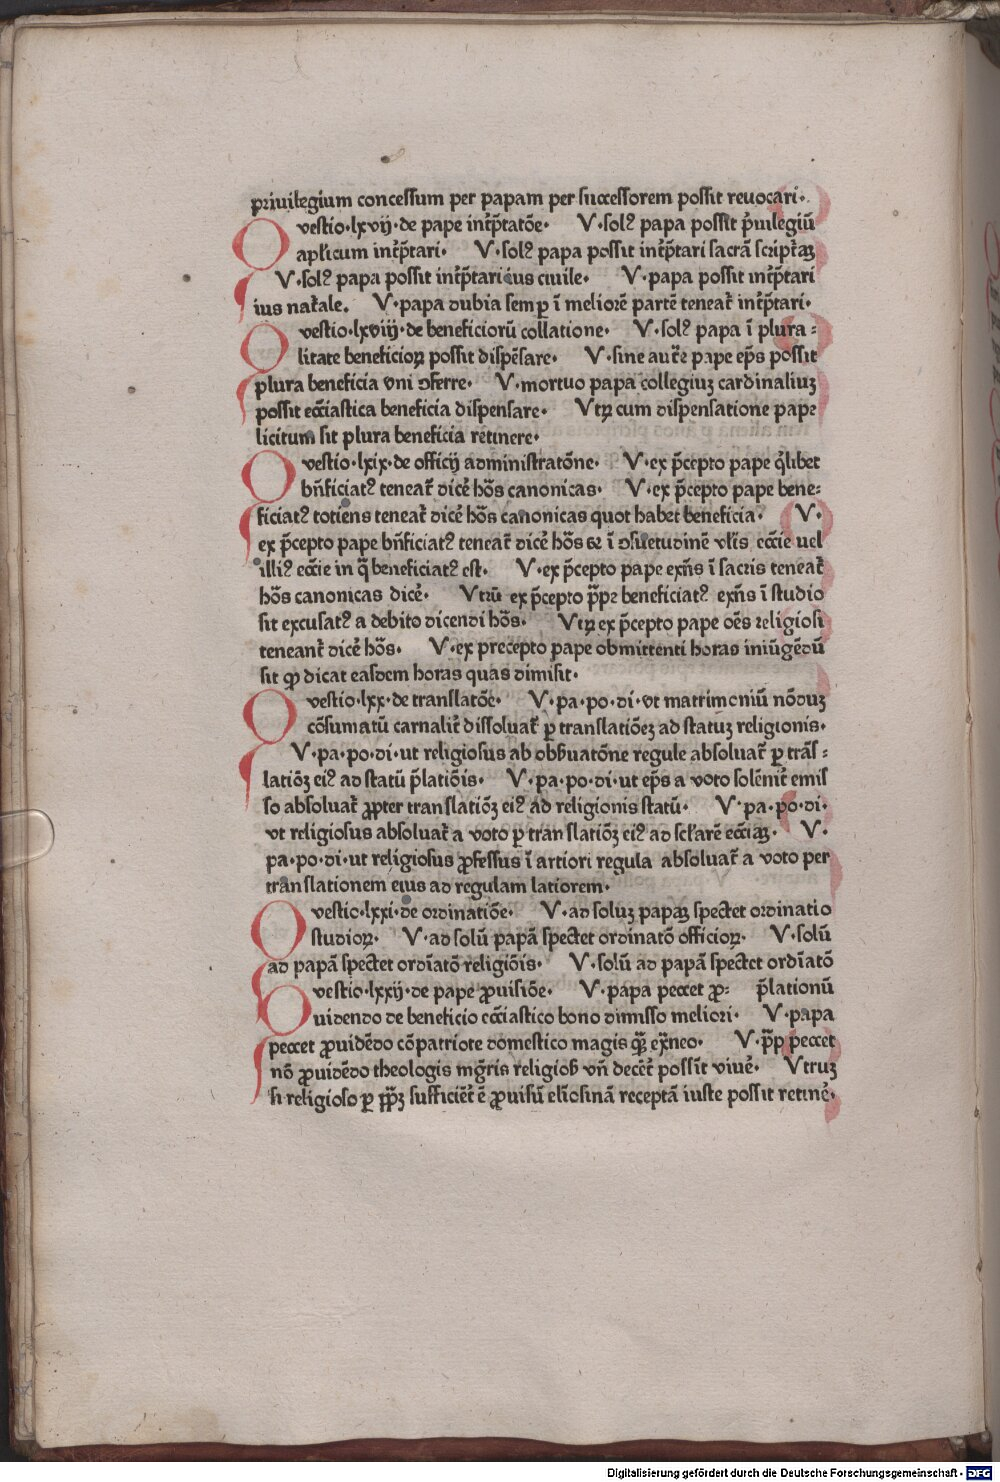 priuilegium concessum per papam per successorem possit reuocari·
Questio·lxvij·de pape int̃p̃tatōe· V·solꝰ papa possit p̃uilegiū
aplicum int̃p̃tari· V·solꝰ papa possit int̃p̃tari sacrā script̃aꝫ
V·solꝰ papa possit int̃p̃tari ius ciuile· V·papa possit int̃p̃tari
ius nat̃ale. V·papa dubia semꝑ ī meliorē partē teneat̃ int̃p̃tari·
Questio·lxviij·de beneficiorū collatione· V·solꝰ papa ī plura-
litate beneficioꝝ possit dispēsare· V·sine auct̃e pape ep̃s possit
plura beneficia vni ꝯferre· V·mortuo papa collegiuꝫ cardinaliuꝫ
possit eccĩastica beneficia dispensare· Vtꝝ cum dispensatione pape
licitum sit plura beneficia retinere·
Questio·lxix·de officij administratōne· V·ex p̃cepto pape q̃libet
bñficiatꝰ teneat̃ dicẽ hōs canonicas· V·ex p̃cepto pape bene-
ficiatꝰ totiens teneat̃ dicẽ hōs canonicas quot habet beneficia· V·
ex p̃cepto pape bñficiatꝰ teneat̃ dicẽ hōs ẜꝫ ī ꝯsuetudinē vl̃is eccĩe uel
illiꝰ eccĩe in q̃ beneficiatꝰ est· V·ex p̃cepto pape exñs ī sacris teneat̃
hōs canonicas dicẽ· Vtrū ex p̃cepto p̃pe beneficiatꝰ exñs ī studio
sit excusatꝰ a debito dicendi hōs· Vtꝝ ex p̃cepto pape oēs religiosi
teneant̃ dicẽ hōs· V·ex precepto pape obmittenti horas iniūgēdū
sit ꝙ dicat easdem horas quas dimisit·
Questio·lxx·de translatōe· V·pa·po·di·vt matrimoniū nōduꝫ
cōsumatū carnalit̃ dissoluat̃ ꝑ translatiōeꝫ ad statuꝫ religionis·
V·pa·po·di·ut religiosus ab obẜuatōne regule absoluat̃ ꝑ trās-
latiōꝫ eiꝰ ad statū p̃latiōis· V·pa·po·di·ut ep̃s a voto solēnit̃ emis
so absoluat̃ ꝓpter translatiōꝫ eiꝰ ad religionis statū· V·pa·po·di·
vt religiosus absoluat̃ a voto ꝑ translatiōꝫ eiꝰ ad scl̃arē eccĩaꝫ· V·
pa·po·di·ut religiosus ꝓfessus ī artiori regula absoluat̃ a voto per
translationem eius ad regulam latiorem·
Questio·lxxi·de ordinatiōe· V·ad soluꝫ papaꝫ spectet ordinatio
studioꝝ· V·ad solū papā spectet ordinatō officioꝝ· V·solū
ad papā spectet ordīatō religiōis· V·solū ad papā spectet ordīatō
Questio·lxxij·de pape ꝓuisiōe· V·papa peccet ꝓ- p̃lationū
uidendo de beneficio eccĩastico bono dimisso meliori· V·papa
peccet ꝓuidēdo cōpatriote domestico magis qͣꝫ ext̃neo· V·p̃p peccet
nō ꝓuidēdo theologis mg̃ris religioẜ vñ decēt̃ possīt viuẽ· Vtruꝫ
si religioso ꝑ pp̃ꝫ sufficiēt̃ ē ꝓuisū elīosinā receptā iuste possit retinẽ·
Digitalisierung gefördert durch die Deutsche Forschungsgemeinschaft - DFG